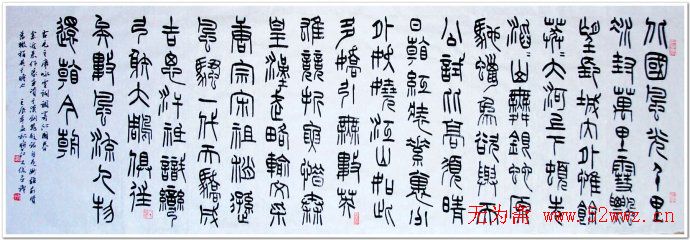 北國風光千里
冰封萬里雪飄
望長城內外惟餘
莽莽大河上下頓失
滔滔山舞銀蛇原
馳蠟象欲與天
公試比高須晴
日看紅裝素裹分
外妖嬈江山如此
多嬌引無數英
雄競折腰惜秦
皇漢武略輸文采
唐宗宋祖稍遜
風騷一代天驕成
吉思汗祇識彎
弓射大鵰俱往
矣數風流人物
還看今朝
无为斋 www.52wwz.cn